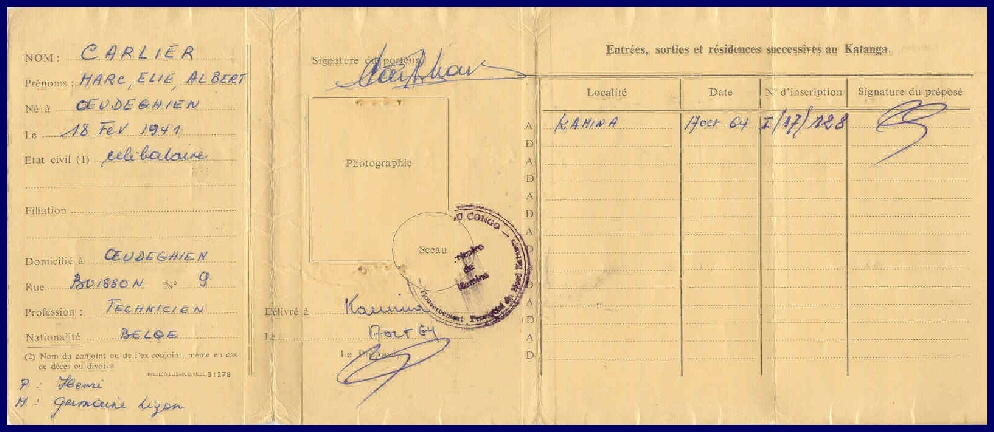 NOM : CARLIER
Prénoms : MARC, ELIE, ALBERT
Né à ŒUDEGHIEN
Le 18 FEV 1941
Etat civil (1) célibataire
Filiation
Domicilié à ŒUDEGHIEN
Rue BUISSON N° 9
Profession : TECHNICIEN
Nationalité BELGE
(2) Nom du conjoint ou de l'ex conjoint, même en cas
de décès ou divorce
31278
P : Henri
M : Germaine Lizon
Signature du porteur
Photographie
Sceau
CONGO
Délivré à Kamina
Le Aout 64
Le Préposé
Entrées, sorties et résidences successives au Katanga
Localité Date N° d'inscription Signature du préposé
A KAMINA Aout 64 I/17/128
D
A
D
A
D
A
D
A
D
A
D